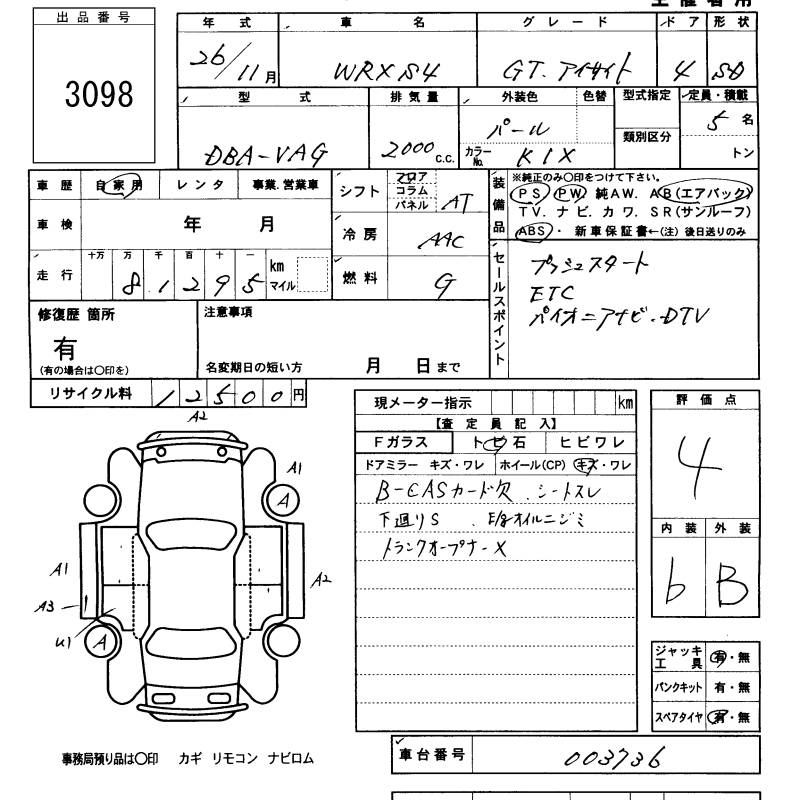 出品番号
3098
年式 車名 グレード ドア 形状
26/11月 WRX S4 GT.アイサイト 4 SD
型式 排気量 外装色 色替 型式指定 定員・積載
DBA-VAG 2000c.c. パール 類別区分 5名
カラーNo. K1X トン
車歴 自家用 レンタ 事業.営業車
車検 年 月
走行 十万 万 千 百 十 一 km マイル
8 1 2 9 5
シフト フロア コラム パネル AT
冷房 AAC
燃料 G
装備品
※純正のみ〇印をつけて下さい。
PS. PW. 純AW. AB(エアバック)
TV. ナビ. カワ. SR(サンルーフ)
ABS. 新車保証書←(注)後日送りのみ
セールスポイント
プッシュスタート
ETC
パイオニアナビ.DTV
修復歴 箇所
有
(有の場合は〇印を)
注意事項
名変期日の短い方 月 日まで
リサイクル料 12500円
現メーター指示 km
【査定員記入】
Fガラス トビ石 ヒビワレ
ドアミラー キズ・ワレ ホイール(CP) キズ・ワレ
B-CASカード欠 . シートスレ
下廻りS . E/gオイルニジミ
トランクオープナー×
評価点
4
内装 外装
b B
A2
A1
A
A1
A2
A3
U1
A
ジャッキ工具 有・無
パンクキット 有・無
スペアタイヤ 有・無
事務局預り品は〇印 カギ リモコン ナビロム
車台番号 003736